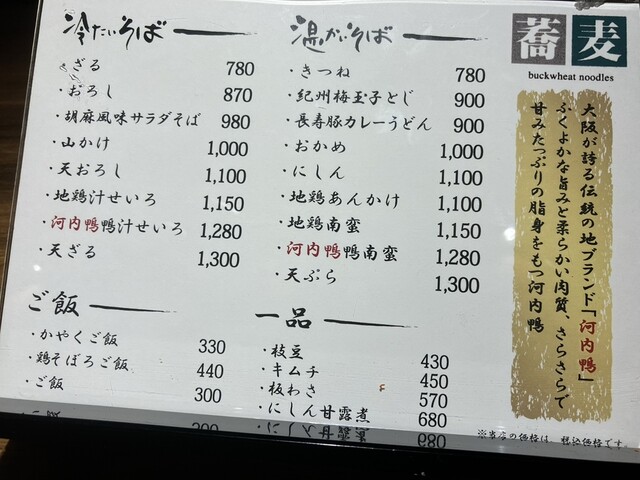 冷たいそば
・ざる 780
・おろし 870
・胡麻風味サラダそば 980
・山かけ 1,000
・天おろし 1,100
・地鶏汁せいろ 1,150
・河内鴨鴨汁せいろ 1,280
・天ざる 1,300
温かいそば
・きつね 780
・紀州梅玉子とじ 900
・長寿豚カレーうどん 900
・おかめ 1,000
・にしん 1,100
・地鶏あんかけ 1,100
・地鶏南蛮 1,150
・河内鴨鴨南蛮 1,280
・天ぷら 1,300
蕎麦
buckwheat noodles
大阪が誇る伝統の地ブランド「河内鴨」
ふくよかな旨みと柔らかい肉質、さらさらで
甘みたっぷりの脂身をもつ河内鴨
ご飯
・かやくご飯 330
・鶏そぼろご飯 440
・ご飯 300
一品
・枝豆 430
・キムチ 450
・板わさ 570
・にしん甘露煮 680
※当店の価格は、税込価格です。